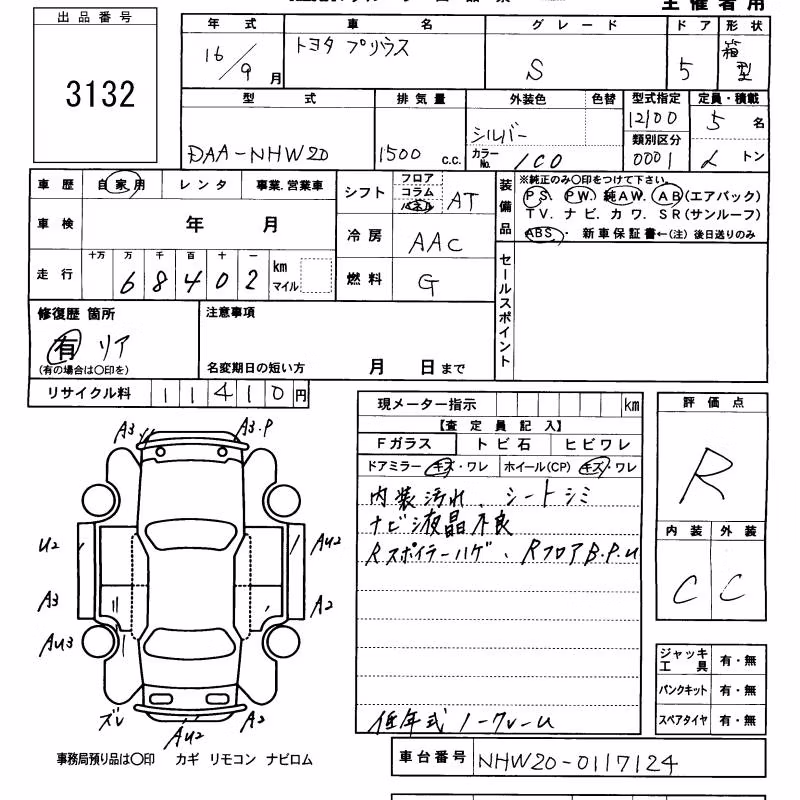 主催者用
出品番号
3132
年式 車名 グレード ドア 形状
16/9月 トヨタ プリウス S 5 箱型
型式 排気量 外装色 色替 型式指定 定員・積載
DAA-NHW20 1500 C.C. シルバー 12100 5名
カラーNo. 1C0 類別区分 0001 トン
車歴 自家用 レンタ 事業.営業車
車検 年 月
十万 万 千 百 十 一
走行 68402 km マイル
シフト フロア コラム パネル AT
冷房 AAC
燃料 G
装備品 ※純正のみ〇印をつけて下さい。
PS. PW. 純AW. AB(エアバック)
TV. ナビ. カワ. SR(サンルーフ)
ABS. 新車保証書←(注) 後日送りのみ
セールスポイント
修復歴 箇所
有 リア
(有の場合は〇印を)
注意事項
名変期日の短い方 月 日まで
リサイクル料 11410円
現メーター指示 km
【査定員記入】
Fガラス トビ石 ヒビワレ
ドアミラー キズ・ワレ ホイール(CP) キズ・ワレ
内装汚れ、シートシミ
ナビ液晶不良
Rスポイラーハゲ、RフロアB.P.U
低年式ノークレーム
評価点
R
内装 外装
C C
ジャッキ工具 有・無
パンクキット 有・無
スペアタイヤ 有・無
A3 A3.P
U2 AU2
A3 A2
AU3
ズレ AU2 A2
事務局預り品は〇印 カギ リモコン ナビロム
車台番号 NHW20-0117124